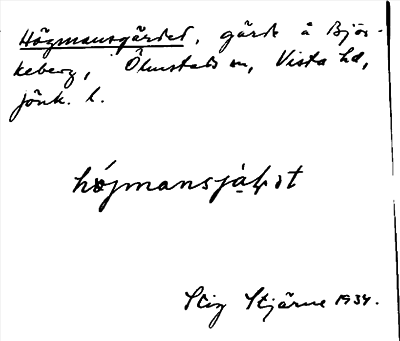 Högmansgärdet, gärde å Björ-
keberg, Ölmstads sn, Vista hd,
Jönk. l.
höjmansjäḷst
Stig Stjärne 1934.